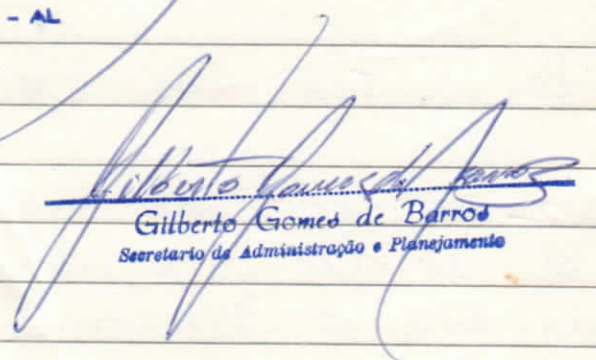 - AL
Gilberto Gomes de Barros
Gilberto Gomes de Barros
Secretario de Administração e Planejamento